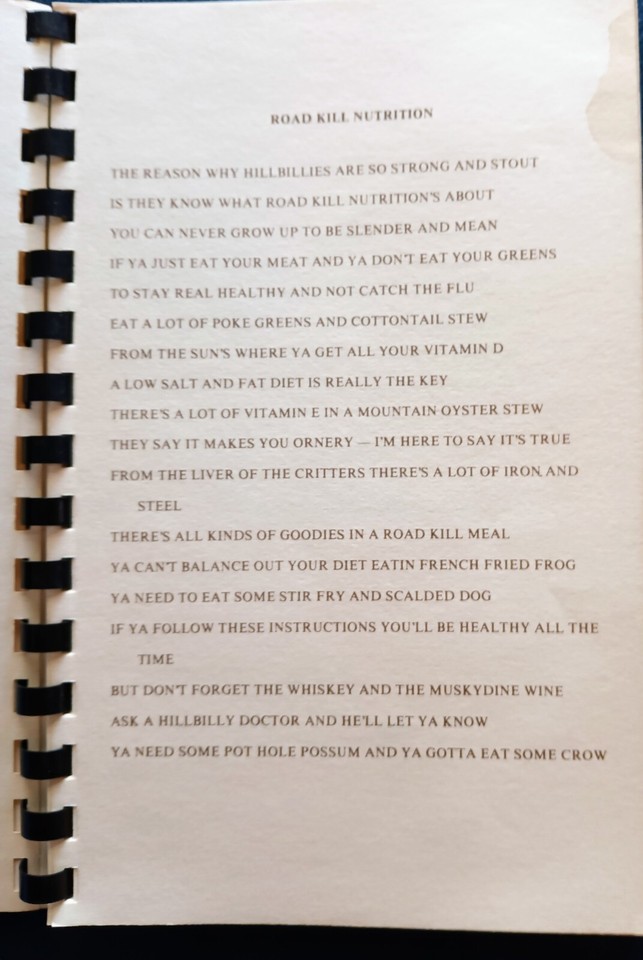 ROAD KILL NUTRITION
THE REASON WHY HILLBILLIES ARE SO STRONG AND STOUT
IS THEY KNOW WHAT ROAD KILL NUTRITION'S ABOUT
YOU CAN NEVER GROW UP TO BE SLENDER AND MEAN
IF YA JUST EAT YOUR MEAT AND YA DON'T EAT YOUR GREENS
TO STAY REAL HEALTHY AND NOT CATCH THE FLU
EAT A LOT OF POKE GREENS AND COTTONTAIL STEW
FROM THE SUN'S WHERE YA GET ALL YOUR VITAMIN D
A LOW SALT AND FAT DIET IS REALLY THE KEY
THERE'S A LOT OF VITAMIN E IN A MOUNTAIN OYSTER STEW
THEY SAY IT MAKES YOU ORNERY — I'M HERE TO SAY IT'S TRUE
FROM THE LIVER OF THE CRITTERS THERE'S A LOT OF IRON AND
STEEL
THERE'S ALL KINDS OF GOODIES IN A ROAD KILL MEAL
YA CAN'T BALANCE OUT YOUR DIET EATIN FRENCH FRIED FROG
YA NEED TO EAT SOME STIR FRY AND SCALDED DOG
IF YA FOLLOW THESE INSTRUCTIONS YOU'LL BE HEALTHY ALL THE
TIME
BUT DON'T FORGET THE WHISKEY AND THE MUSKYDINE WINE
ASK A HILLBILLY DOCTOR AND HE'LL LET YA KNOW
YA NEED SOME POT HOLE POSSUM AND YA GOTTA EAT SOME CROW